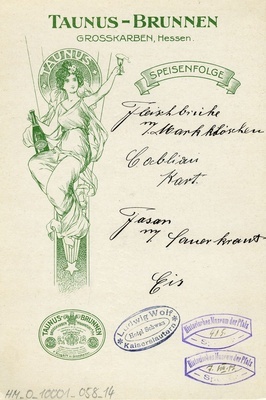 TAUNUS-BRUNNEN
GROSSKARBEN, Hessen.
TAUNUS
SPEISENFOLGE
Fleischbrühe
m/ Markklöschen
Cabliau
Kart.
Fasan
m/ Sauerkraut
Eis
TAUNUS-BRUNNEN
Ludwig Wolf
Hotel Schwan
Kaiserslautern
Historisches Museum der Pfalz
Historisches Museum der Pfalz
HM_0_10001_058_14